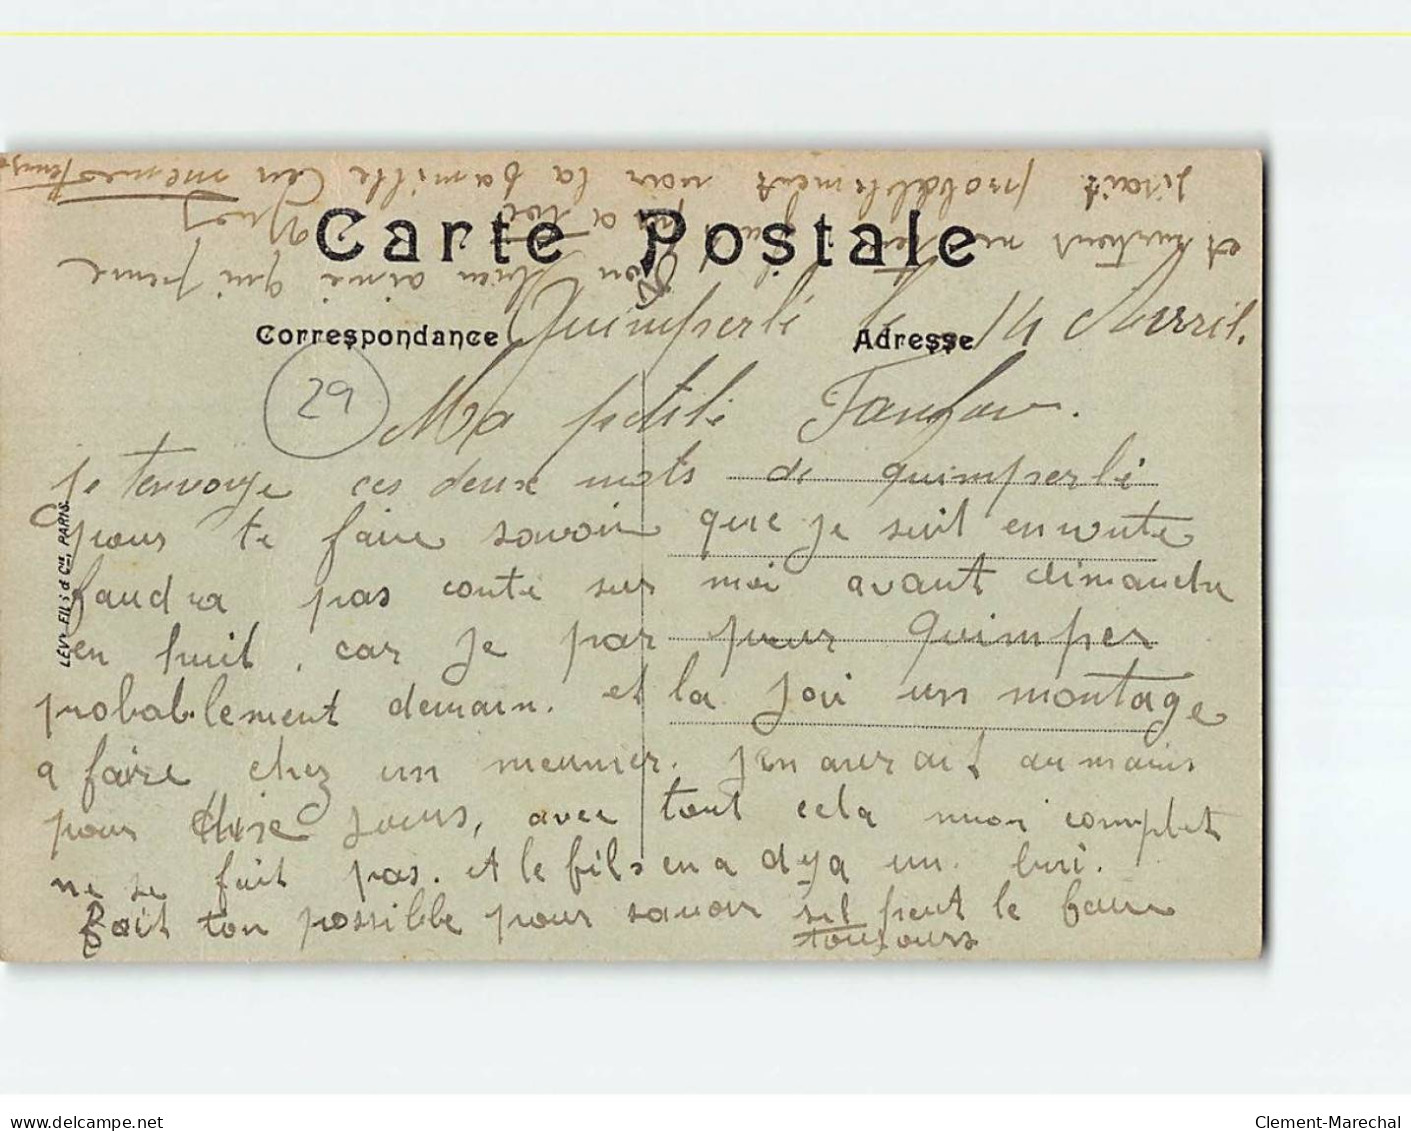 Carte Postale
Correspondance
Adresse
Quimperlé le 14 Avril.
29
Ma petite Fanfan.
je tenvoye ces deux mots de quimperlé
pour te faire savoir que je suit en route
faudra pas conté sur moi avant dimanche
en huit, car je par pour Quimper
probablement demain. et la jai un montage
a faire chez un meunier. jen aurait au moins
pour jours, avec tout cela mon complet
ne se fait pas. et le fils en a dja un.
Fait ton possible pour savoir sil peut le faire
toujours
et surtout ne
sirait probablement voir la famille en même temps
Ton bien aimé qui pense
a toi
LEVY FILS & Cie, PARIS.
www.delcampe.net
Clement-Marechal